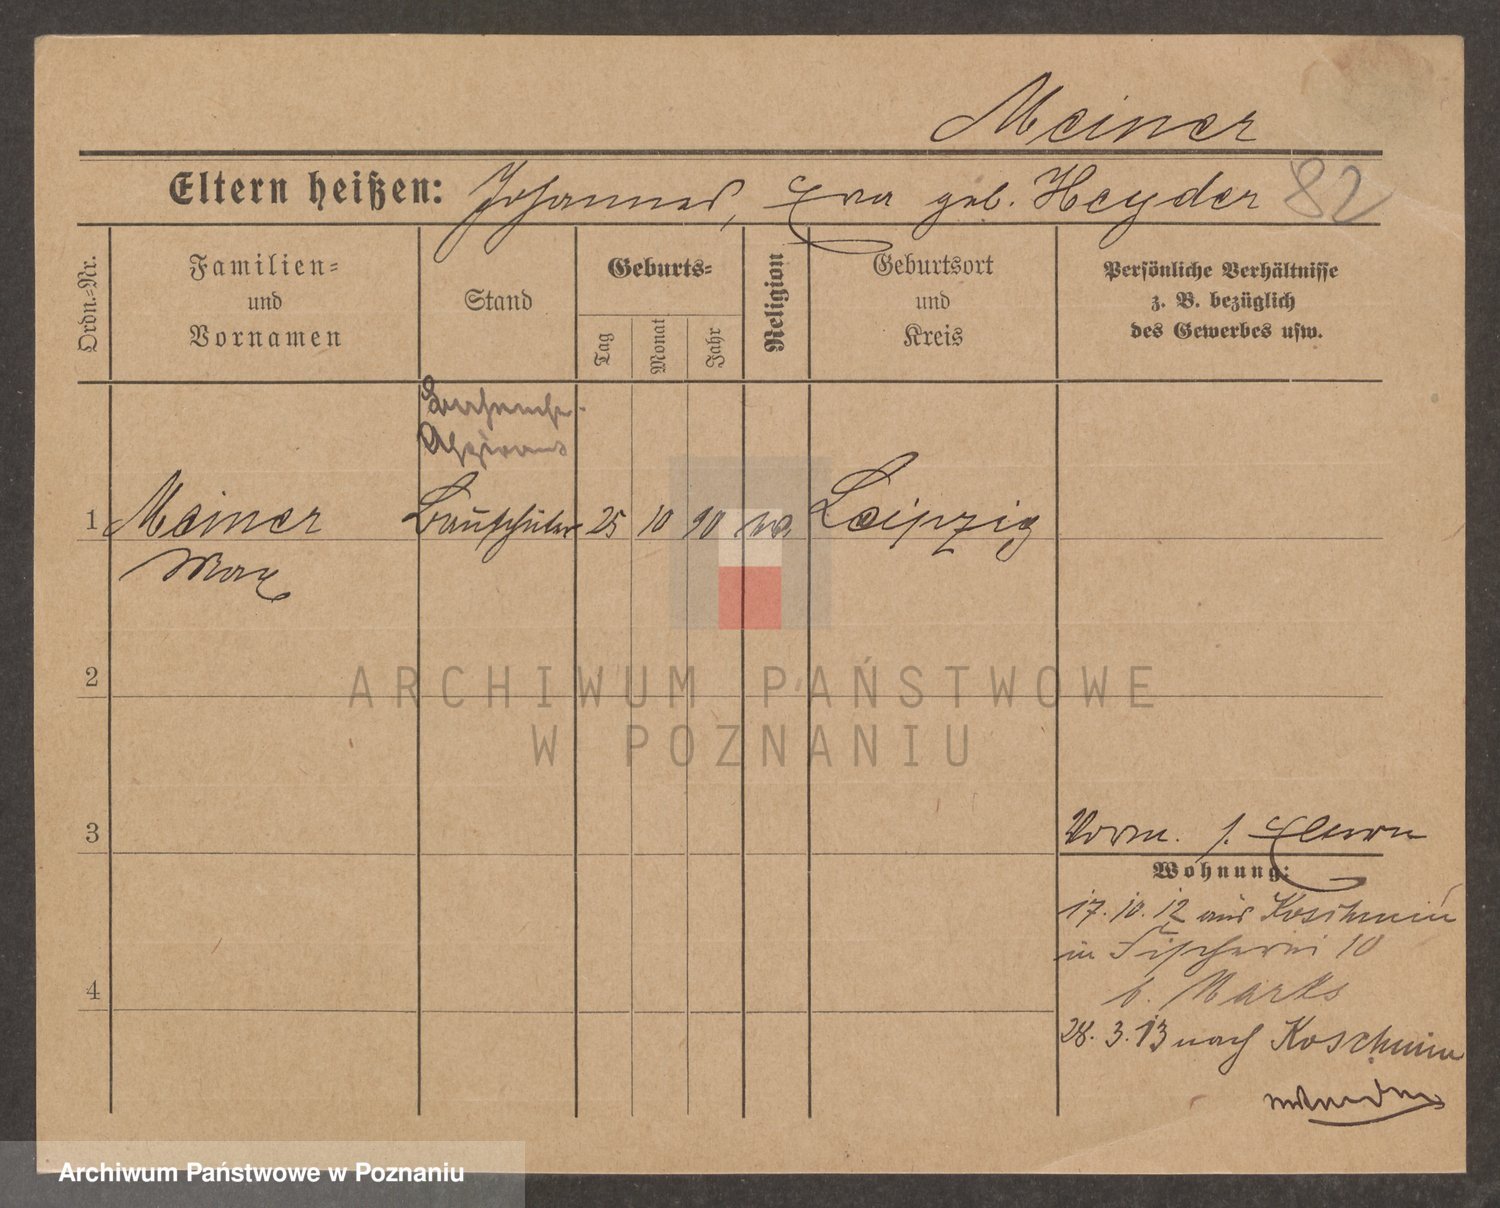 Meiner
Eltern heißen: Johannes, Eva geb. Heyder 82
Ordn.-Nr.
Familien-
und
Vornamen
Stand
Geburts-
Tag
Monat
Jahr
Religion
Geburtsort
und
Kreis
Persönliche Verhältnisse
z. B. bezüglich
des Gewerbes usw.
1 Meiner Bauschüler 25 10 90 Leipzig
Max
2
ARCHIWUM PAŃSTWOWE
W POZNANIU
3
Vorm. s. Eltern
Wohnung:
17.10.12 aus Koschmin
in Fischerei 10
4
b. Marks
28.3.13 nach Koschmin
Archiwum Państwowe w Poznaniu